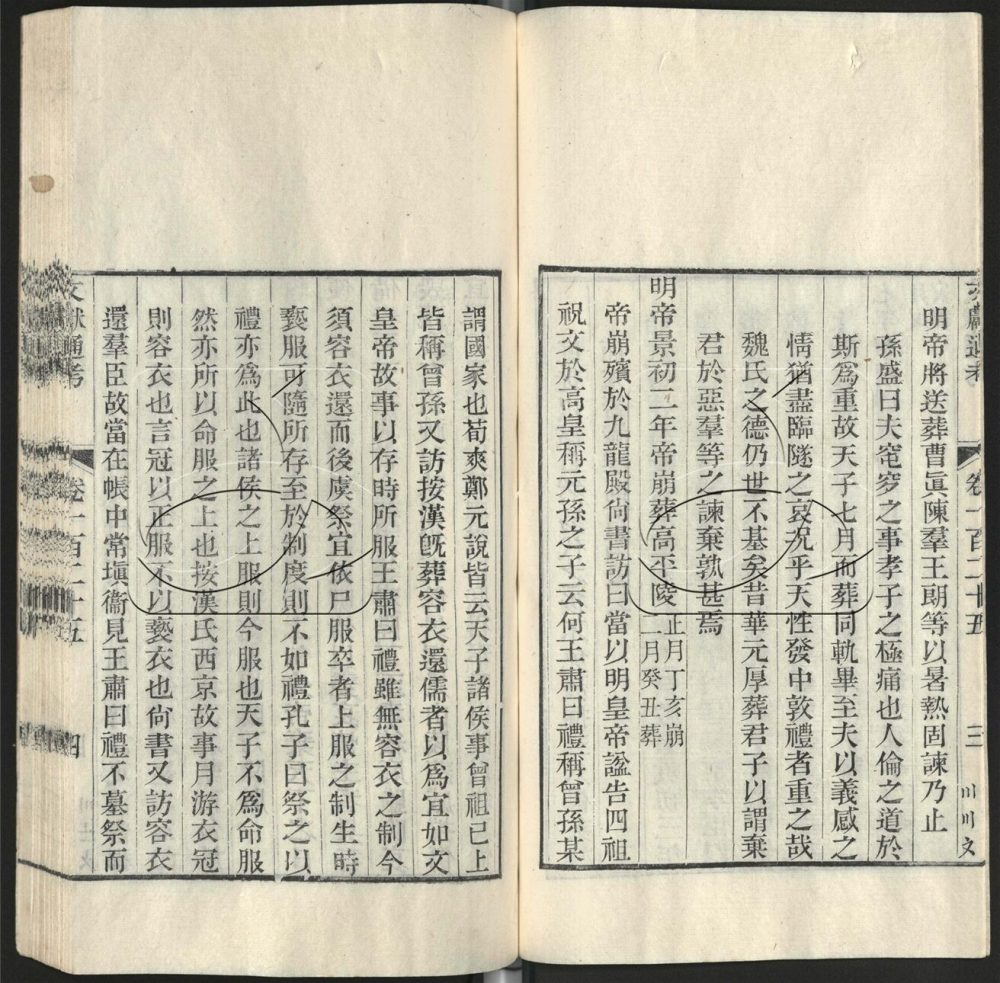 明帝將送葬曹真陳羣王朗等以暑熱固諫乃止
孫盛曰夫窀穸之事孝子之極痛也人倫之道於
斯爲重故天子七月而葬同軌畢至夫以義感之
情猶盡臨隧之哀況乎天性發中敦禮者重之哉
魏氏之德仍世不基矣昔華元厚葬君子以謂棄
君於惡羣等之諫棄孰甚焉
明帝景初二年帝崩葬高平陵正月丁亥崩二月癸丑葬
帝崩殯於九龍殿尙書訪曰當以明皇帝諡告四祖
祝文於高皇稱元孫之子云何王肅曰禮稱曾孫某
文獻通考 卷一百二十五 三
謂國家也荀爽鄭元說皆云天子諸侯事曾祖已上
皆稱曾孫又訪按漢旣葬容衣還儒者以爲宜如文
皇帝故事以存時所服王肅曰禮雖無容衣之制今
須容衣還而後虞祭宜依尸服卒者上服之制生時
褻服可隨所存至於制度則不如禮孔子曰祭之以
禮亦爲此也諸侯之上服則今服也天子不爲命服
然亦所以命服之上也按漢氏西京故事月游衣冠
則容衣也言冠以正服不以褻衣也尙書又訪容衣
還羣臣故當在帳中常塡衞見王肅曰禮不墓祭而
文獻通考 卷一百二十五 四